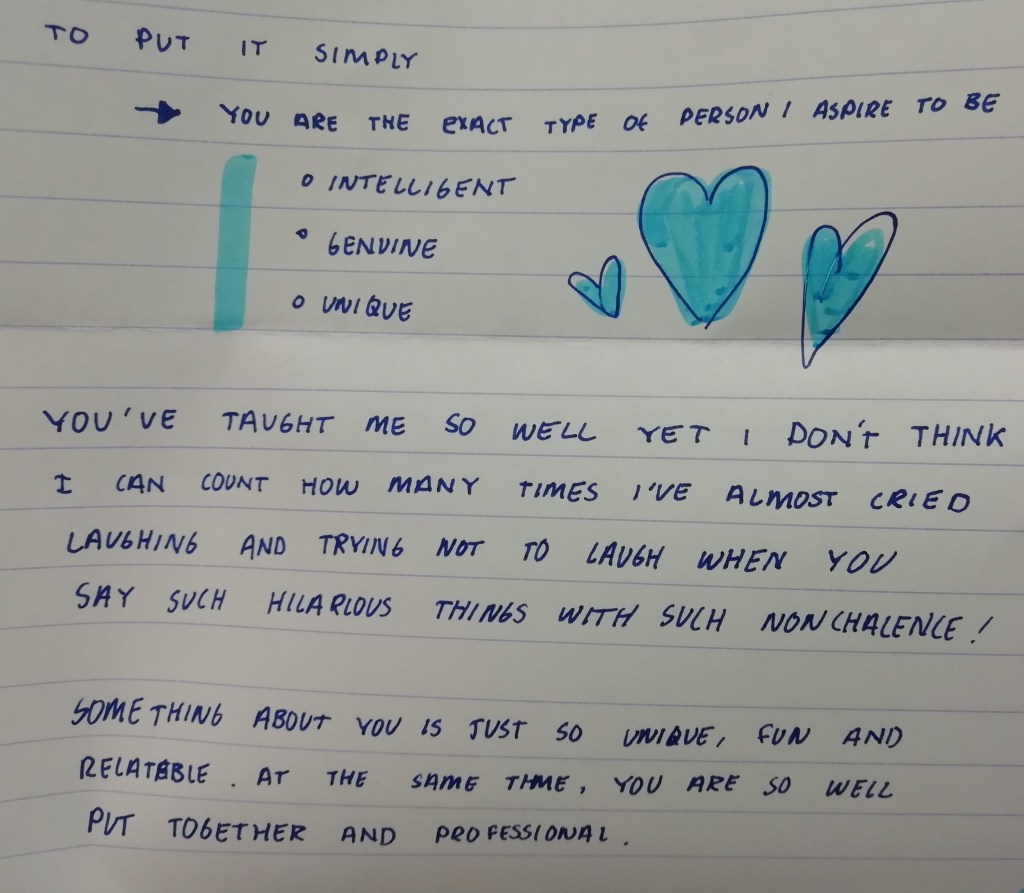 TO PUT IT SIMPLY
→ YOU ARE THE EXACT TYPE OF PERSON I ASPIRE TO BE
o INTELLIGENT
o GENUINE
o UNIQUE
YOU'VE TAUGHT ME SO WELL YET I DON'T THINK
I CAN COUNT HOW MANY TIMES I'VE ALMOST CRIED
LAUGHING AND TRYING NOT TO LAUGH WHEN YOU
SAY SUCH HILARIOUS THINGS WITH SUCH NONCHALENCE!
SOMETHING ABOUT YOU IS JUST SO UNIQUE, FUN AND
RELATABLE. AT THE SAME TIME, YOU ARE SO WELL
PUT TOGETHER AND PROFESSIONAL.